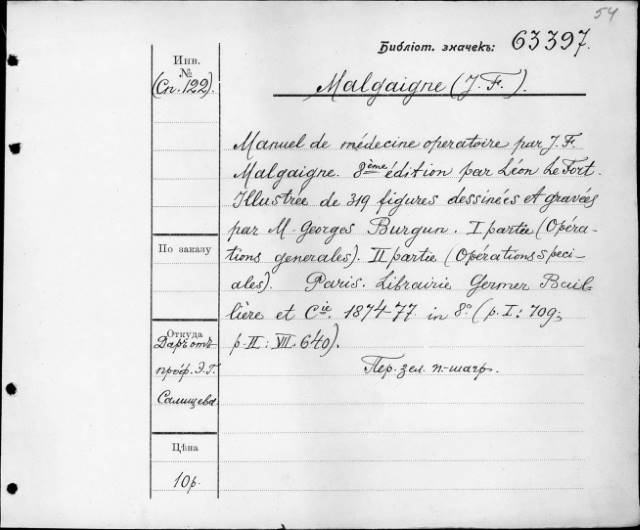 54
Библіот. значекъ: 63397.
Инв.
№
(Сп. 122).
Malgaigne (J. F.).
Manuel de médecine operatoire par J. F.
Malgaigne. 8ème édition par Léon Le Fort.
Illustrée de 319 figures dessinées et gravées
par M. Georges Burgun. I partie (Opéra-
tions generales). II partie (Opérations speci-
ales). Paris. Librairie Germer Bail-
lière et Cie. 1874-77 in 8° (p. I: 709;
p. II: VII. 640).
Пер. зел. п.-шагр.
По заказу
Откуда
Даръ отъ
проф. Э. Г.
Салищева.
Цѣна
10р.